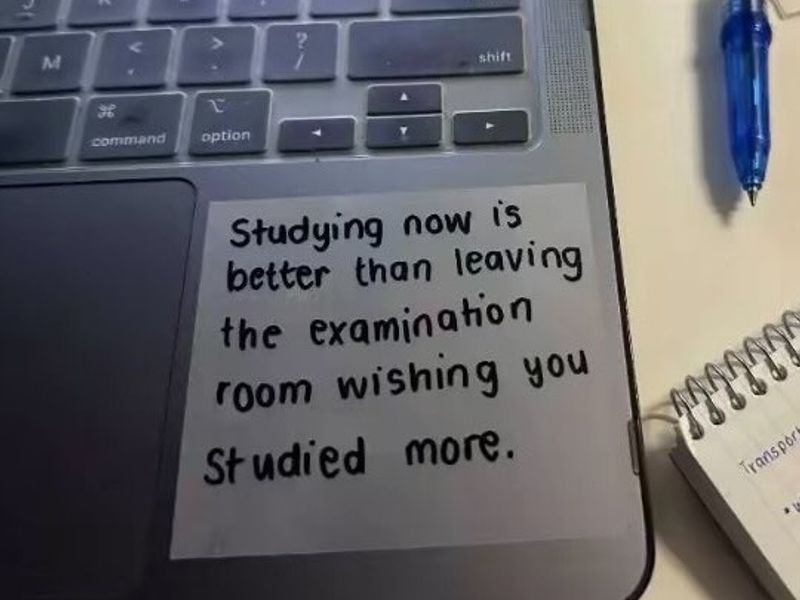 M
<
,
>
.
?
/
shift
⌘
command
⌥
option
◄
▲
▼
►
Studying now is
better than leaving
the examination
room wishing you
Studied more.